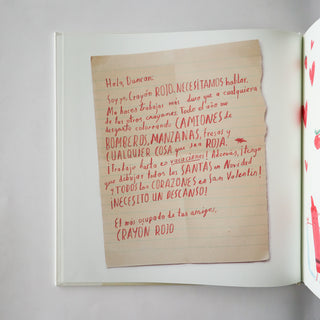 Hola, Duncan:
Soy yo, Crayón ROJO. NECESITAMOS hablar.
Me haces trabajar más duro que a cualquiera
de tus otros crayones. Todo el año me
desgasto coloreando CAMIONES de
BOMBEROS, MANZANAS, fresas y
CUALQUIER COSA que sea ROJA.
¡Trabajo hasta en vacaciones! Además, ¡tengo
que dibujar todos los SANTAS en Navidad
y TODOS los CORAZONES en San Valentín!
¡NECESITO UN DESCANSO!
El más ocupado de tus amigos,
CRAYÓN ROJO